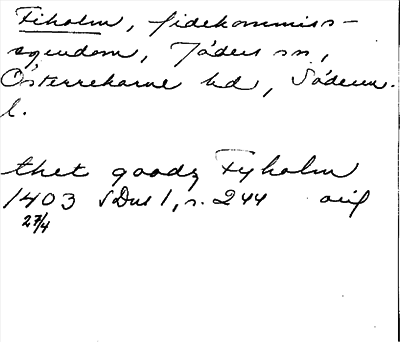 Fiholm, fidekommiss-
egendom, Jäders sn,
Österrekarne hd, Söderm.
l.
thet goodz Fyholm
1403 SDns 1, s. 244 orig
27/4